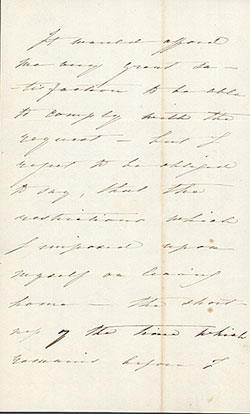 It would afford
me very great sa-
tisfaction to be able
to comply with the
request - but I
regret to be obliged
to say, that the
restrictions which
I imposed upon
myself on leaving
home - the short-
ness of the time which
remains before I